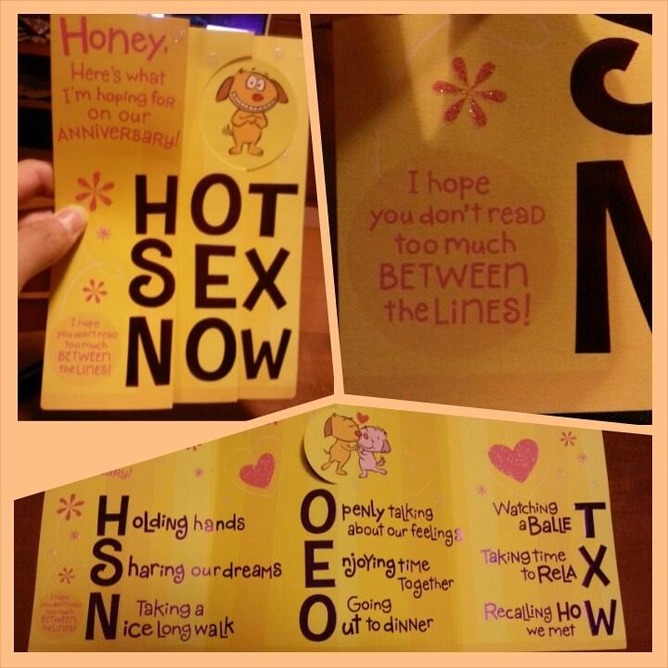 Honey,
Here's what
I'm hoping for
on our
ANNIVERSARY!
HOT
SEX
NOW
I hope
you don't read
too much
BETWEEN
the LINES!
I hope
you don't read
too much
BETWEEN
the LINES!
Holding hands
Sharing our dreams
Taking a
Nice Long walk
I hope
you don't read
too much
BETWEEN
the LINES!
Openly talking
about our feelings
Enjoying time
Together
Going
Out to dinner
Watching
a BALLET
Taking time
to RELAX
Recalling HOW
we met